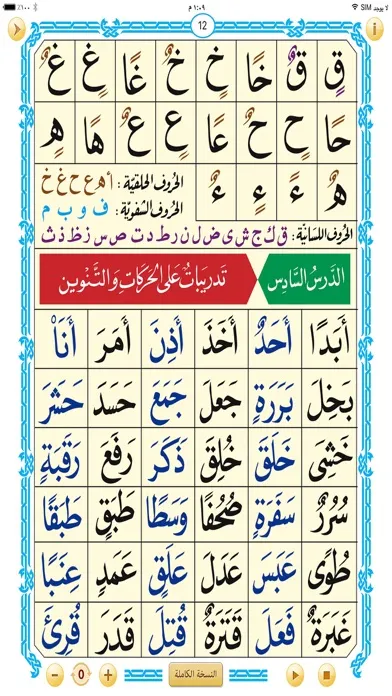 لا يوجد SIM ١:٠٩ م ٪١٠٠
12
قٍ قٌ خًا خٍ خٌ غًا غٍ غٌ
حًا حٍ حٌ عًا عٍ عٌ هًا هٍ
هٌ ءً ءٍ ءٌ
الحُروف الحلقيَّة : أ هـ ع ح غ خ
الحُروف الشفويَّة : ف و ب م
الحُروف اللسانيَّة : ق ك ج ش ي ض ل ن ر ط د ت ص س ز ظ ذ ث
الدَّرسُ السَّادِس تَدريبَاتٌ عَلَى الحَرَكَاتِ وَالتَّنْوين
أَبَدًا أَحَدٌ أَخَذَ أَذِنَ أَمَرَ أَنَاْ
بَخِلَ بَرَرَةٍ جَعَلَ جَمَعَ حَسَدَ حَشَرَ
خَشِىَ خَلَقَ خُلِقَ ذَكَرَ رَفَعَ رَقَبَةٍ
سُرُرٌ سَفَرَةٍ صُحُفًا وَسَطًا طَبَقٍ طَبَقًا
طُوًى عَبَسَ عَدَلَ عَلَقٍ عَمَدٍ عِنَبًا
غَبَرَةٌ فَعَلَ قَتَرَةٌ قُتِلَ قَدَرَ قُرِئَ
0 النسخة الكاملة